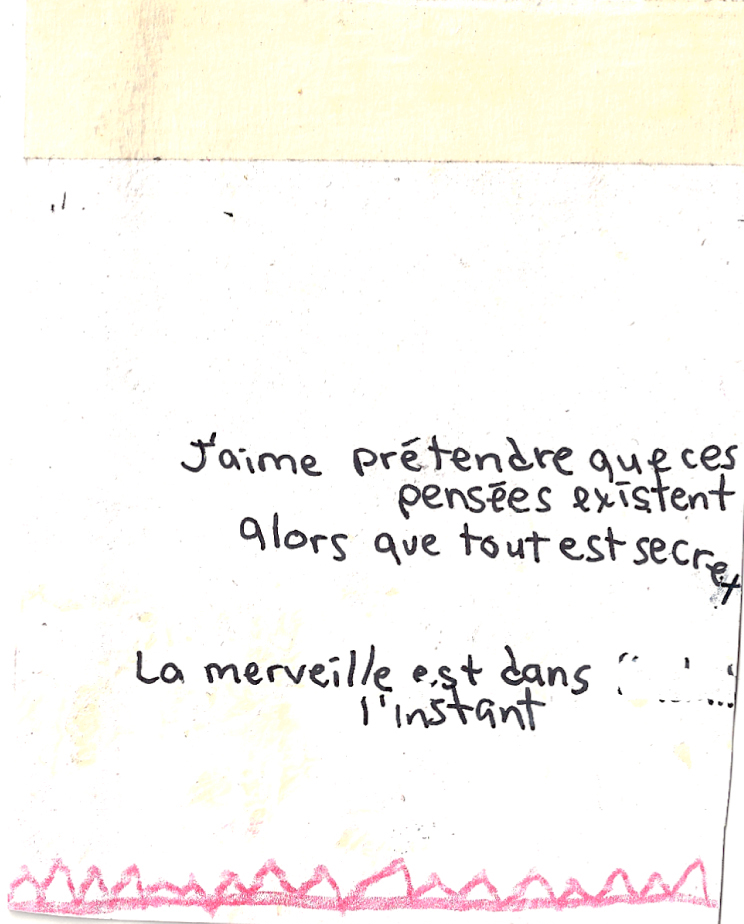 J'aime prétendre que ces
pensées existent
alors que tout est secret
La merveille est dans
l'instant